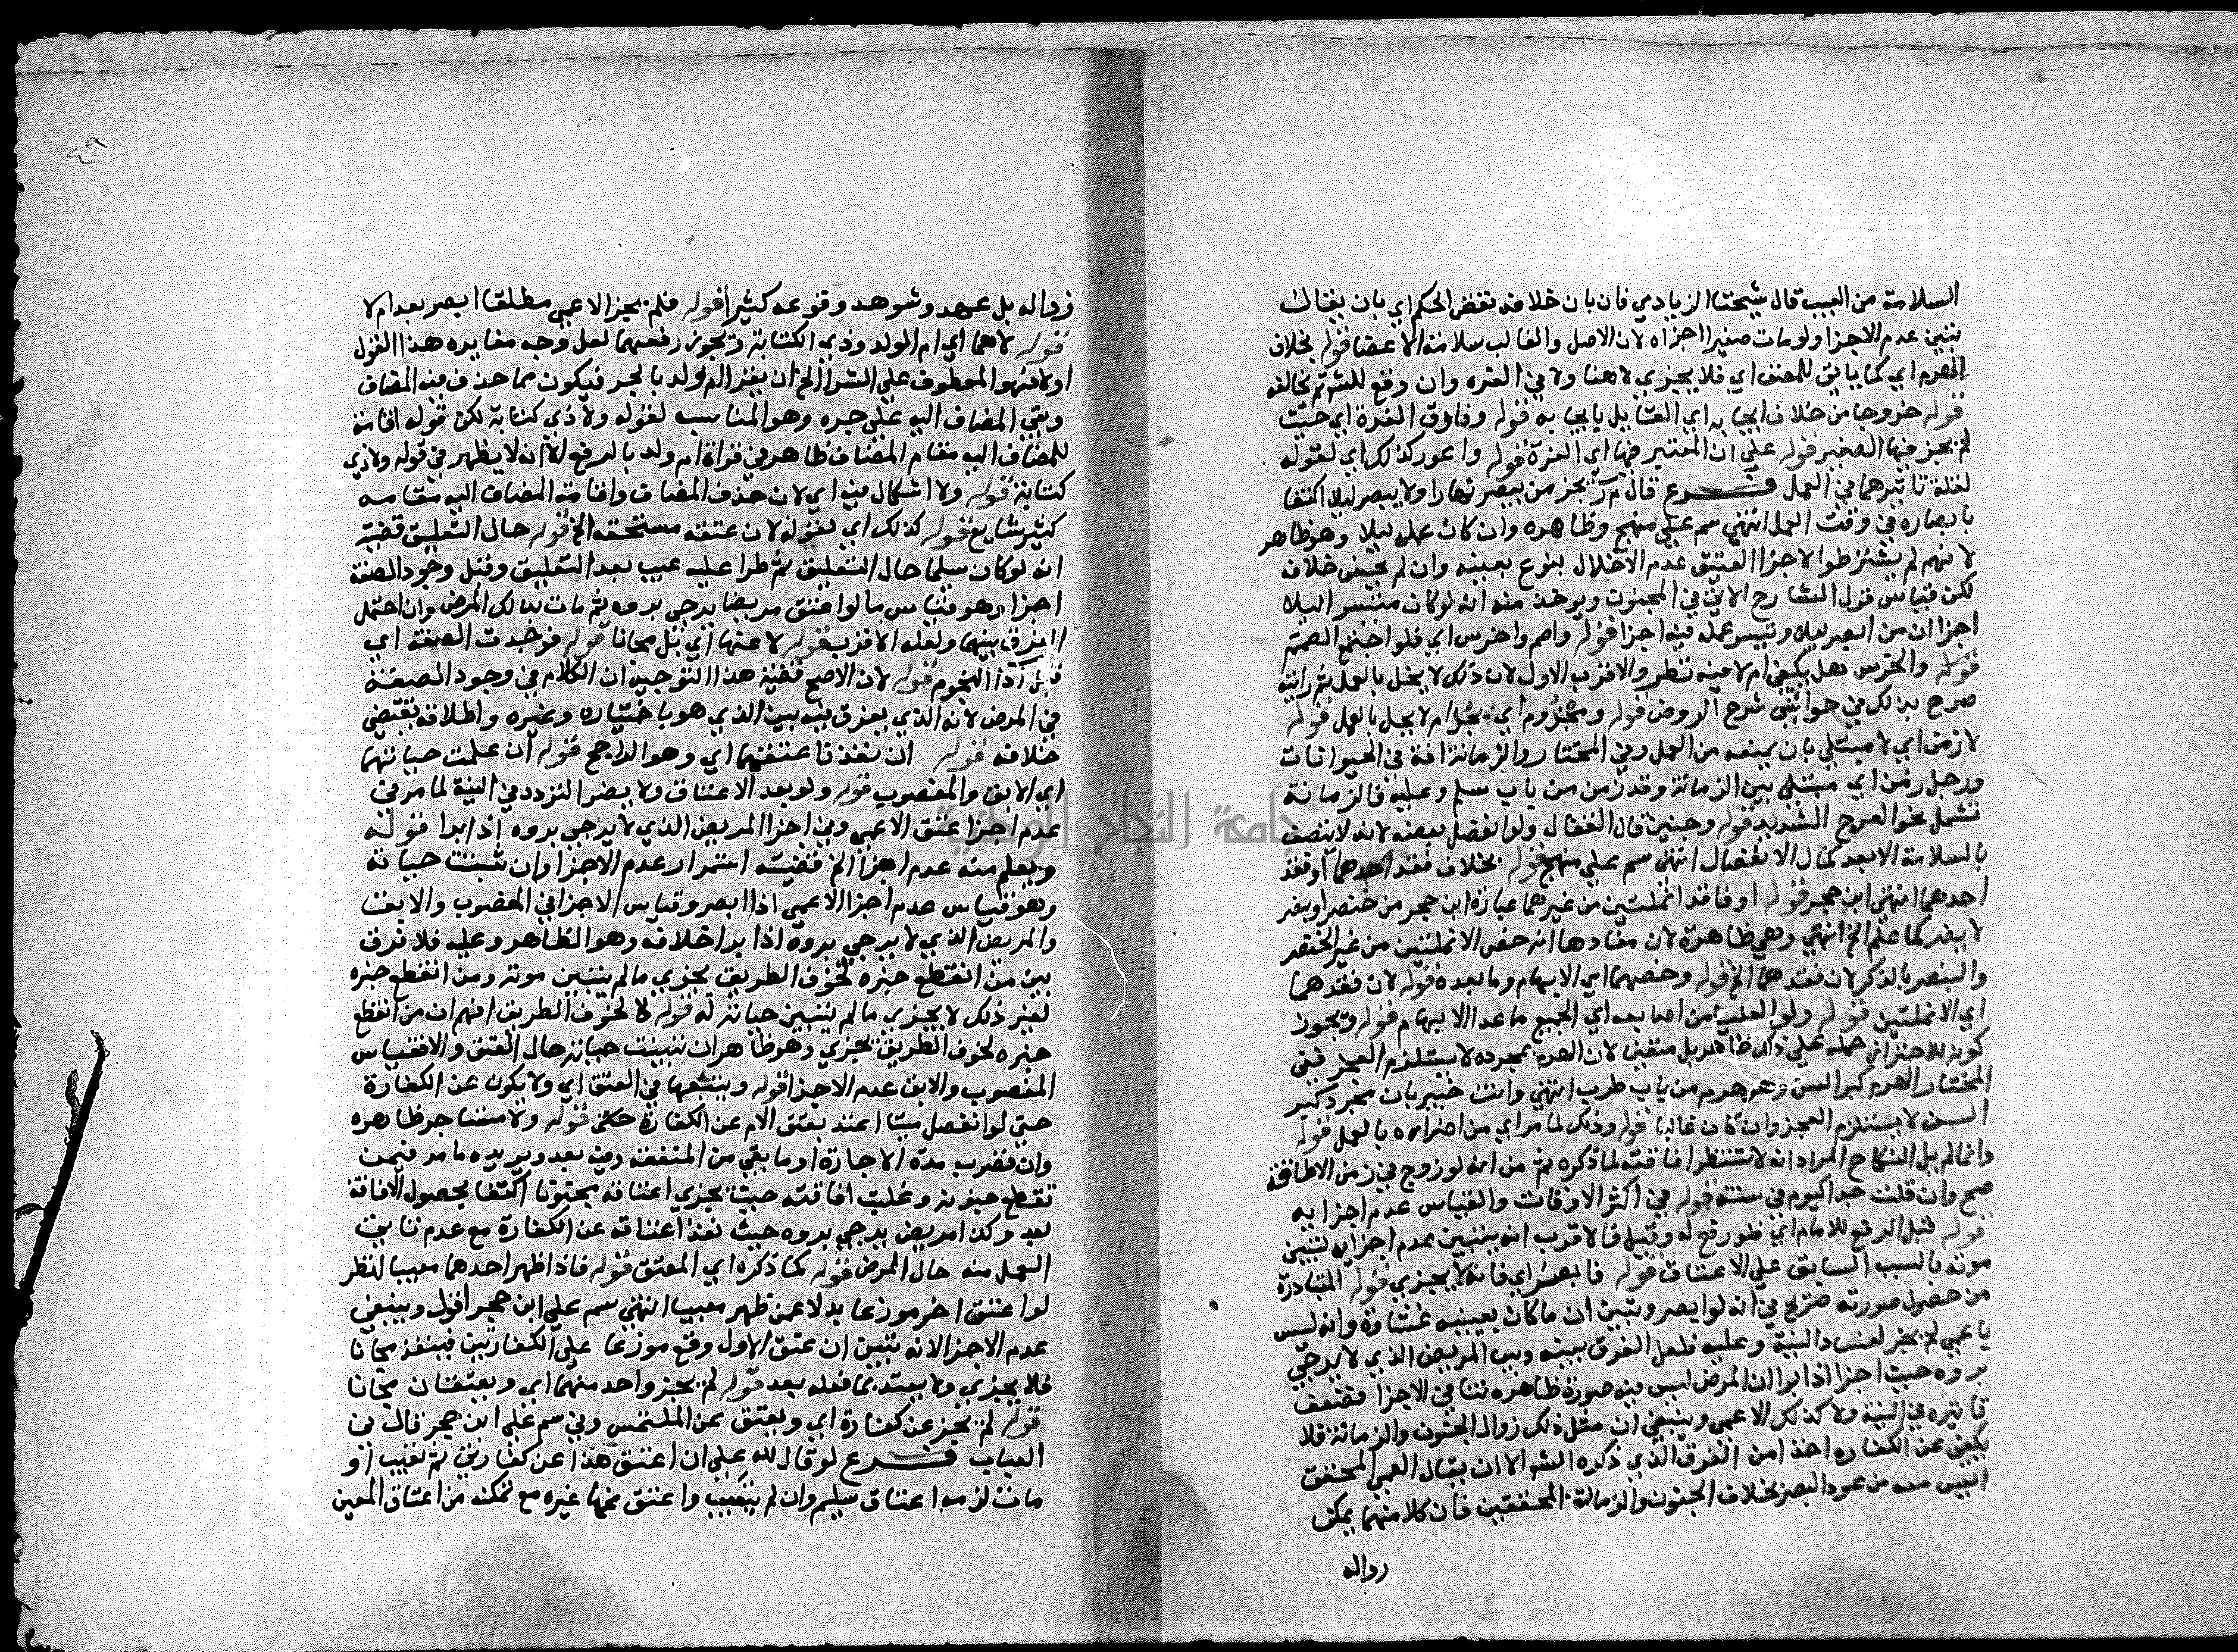 السلامة من العيب قال شيخنا الزيادي فان بان خلافه نقض الحكم اي بان يقال
بتبين عدم الاجزا ولو مات صغيرا اجزاه لان الاصل والغالب سلامة الاعضا قوله بخلاف
الهرم اي كما ياتي للمصنف اي فلا يجزي لا هنا ولا في الغره وان وقع للشـ ثم مخالفه
قوله خروجا من خلاف ايجابه اي القايل بايجابه قوله وفارق الغرة اي حيث
لم يجز فيها الصغير قوله علي ان المعتبر فيها اي الغرة قوله واعور كذلك اي لقوله
لقلة تاثيرهما في العمل فـــرع قال م ر يجز من يبصر نهارا ولا يبصر ليلا اكتفا
بابصاره في وقت العمل انتهي سم علي منهج وظاهره وان كان عمله ليلا وهو ظاهر
لانهم لم يشترطوا لاجزا العتيق عدم الاخلال بنوع بعينه وان لم خلاف
لكن قياس قول الشارح الاتي في المجنون ويوخذ منه انه لو كان متيسر ليلا
اجزا ان من ابصر ليلا وتيسر عمله فيه اجزا قوله واصم واخرس اي فلو اجتمع الصمم
قوله والخرس هل يكفي ام لا فيه نظر والاقرب الاول لان ذلك لا يخل بالعمل ثم رايته
صرح بذلك في حواشي شرح الروض قوله ومجذوم اي ام لا يخل بالعمل قوله
لا زمن اي لا مبتلي بان يمنعه من العمل وفي المختار والزمانة افة في الحيوانات
ورجل زمن اي مبتلي بين الزمانة وقد زمن من باب سلم وعليه فالزمانة
تشمل نحو العرج الشديد قوله وجنين قال القفال ولو انفصل بعضه لانه لا يتصف
بالسلامة الا بعد كمال الانفصال انتهي سم علي منهج قوله بخلاف فقد احدهما او فقد
احدهما انتهي ابن حجر قوله او فاقد انملتين من غيرهما عبارة ابن حجر من خنصر او بنصر
لا يضر كما علم الخ انتهي وهي ظاهرة لان مفادها انه خص الانملتين من غير الخنصر
والبنصر بالذكر لان فقدهما الخ قوله وخصهما اي الابهام وما بعده قوله لان فقدهما
اي الانملتين قوله ولو العليا من اصابعه اي الجميع ما عدا الابهام قوله ويجوز
كونه للاحتراز حمله علي ذلك ظاهر بل متعين لان الهرم بمجرده لا يستلزم العجز ففي
المختار الهرم كبر السن وهو هرم من باب طرب انتهي وانت خبير بان مجرد كبر
السن لا يستلزم العجز وان كان غالبا قوله وذلك لما مر اي من اضراره بالعمل قوله
وانما لم يل النكاح المراد انه لا تنتظر افاقته لما ذكره ثم من انه لو زوج في زمن الافاقة
صح وان قلت جدا كيوم في سنة قوله في اكثر الاوقات والقياس عدم اجزايه
قوله قبل الرفع للامام اي فلو رفع له وقتل فالاقرب انه يتبين عدم اجزايه لتبين
موته بالسبب السابق علي الاعتاق قوله فابصر اي فانه لا يجزي قوله المنافاة
من حصول صورته صريح في انه لو ابصر وتبين ان ما كان بعينيه غشاوة وانه ليس
باعمي لم يجز لفساد النية وعليه فلعل الفرق بينه وبين المريض الذي لا يرجي
بروه حيث اجزا اذا برا ان المرض ليس فيه صورة ظاهرة تنافي الاجزا فضعف
تاثيره في النية ولا كذلك الاعمي وينبغي ان مثل ذلك زوال الجنون والزمانة فلا
يكفي عن الكفاره اخذا من الفرق الذي ذكره الشـ الا ان يقال العمي المحقق
ايس معه من عود البصر بخلاف الجنون والزمانة المحققين فان كلا منهما يمكن
زواله
زواله بل عهد وشوهد وقوعه كثيرا قوله فلم يجز الاعمي مطلقا ابصر بعد ام لا
قوله لاهما اي ام الولد وذي الكتابة وتجويز رفعهما لعل وجه مغايره هذا القول
اولا فهو المعطوف علي الشرا الخ ان يقرا ام ولد بالجر فيكون مما حذف فيه المضاف
وبقي المضاف اليه علي جره وهو المناسب لقوله ولا ذي كتابة لكن قوله اقامة
للمضاف اليه مقام المضاف ظاهر في قراة ام ولد بالرفع الا انه لا يظهر في قوله ولا ذي
كتابة قوله ولا اشكال فيه اي لان حذف المضاف واقامة المضاف اليه مقامه
كثير شايع قوله كذلك اي لقوله لان عتقه مستحقه الخ قوله حال التعليق قضيته
انه لو كان سليما حال التعليق ثم طرا عليه عيب بعد التعليق وقبل وجود الصفة
اجزا وهو قياس ما لو اعتق مريضا يرجي بروه ثم مات بذلك المرض وان احتمل
الفرق بينهما ولعله الاقرب قوله لا عنها اي بل مجانا قوله فوجدت الصفة اي
قبل ادا النجوم قوله لان الاصح قضية هذا التوجيه ان الكلام في وجود الصفة
في المرض لانه الذي يفرق فيه بين الذي هو باختياره وغيره واطلاقه يقتضي
خلافه قوله ان نفذنا عتقهما اي وهو الراجح قوله ان علمت حياتهما
اي الابق والمغصوب قوله ولو بعد الاعتاق ولا يضر التردد في النية لما مر في
عدم اجزا عتق الاعمي وفي اجزا المريض الذي لا يرجي بروه اذا برا قوله
ويعلم منه عدم اجزا الخ قضيته استمرار عدم الاجزا وان تبينت حياته
وهو قياس عدم اجزا الاعمي اذا ابصر وقياس الاجزا في المغصوب والابق
والمريض الذي لا يرجي بروه اذا برا خلافه وهو الظاهر وعليه فلا فرق
بين من انقطع خبره لخوف الطريق يجزي ما لم يتبين موته ومن انقطع خبره
لغير ذلك لا يجزي ما لم يتبين حياته له قوله لا لخوف الطريق افهم ان من انقطع
خبره لخوف الطريق يجزي وهو ظاهر ان تبينت حياته حال العتق والا فقياس
المغصوب والابق عدم الاجزا قوله ويتبعها في العتق اي ولا يكون عن الكفارة
حتي لو انفصل ميتا اعتد بعتق الام عن الكفارة قوله ولا مستاجر ظاهره
وان قصرت مدة الاجارة او ما بقي من المنفعة وفيه بعد ويويده ما مر فيمن
تقطع جنونه وغلبت افاقته حيث يجزي اعتاقه مجنونا اكتفا بحصول الافاقة
بعد وكذا مريض يرجي بروه حيث نفذ اعتاقه عن الكفارة مع عدم تاتي
العمل منه حال المرض قوله كما ذكره اي المعتق قوله فاذا ظهر احدهما معيبا لنظر
لو اعتق اخر موزعا بدلا عمن ظهر معيبا انتهي سم علي ابن حجر اقول وينبغي
عدم الاجزا لانه تبين ان عتق الاول وقع موزعا علي الكفارتين فينفذ مجانا
فلا يجزي ولا يعتد بما فعله بعد قوله لم يجز واحد منهما اي ويعتقان مجانا
قوله لم يجز عن كفارة اي ويعتق عن الملتمس وفي سم علي ابن حجر قال في
العباب فـــرع لو قال لله علي ان اعتق هذا عن كفارتي ثم تعيب او
مات لزمه اعتاق سليم وان لم يتعيب واعتق عنها غيره مع تمكنه من اعتاق المعين
٤٩
جامعة النجاح الوطنية